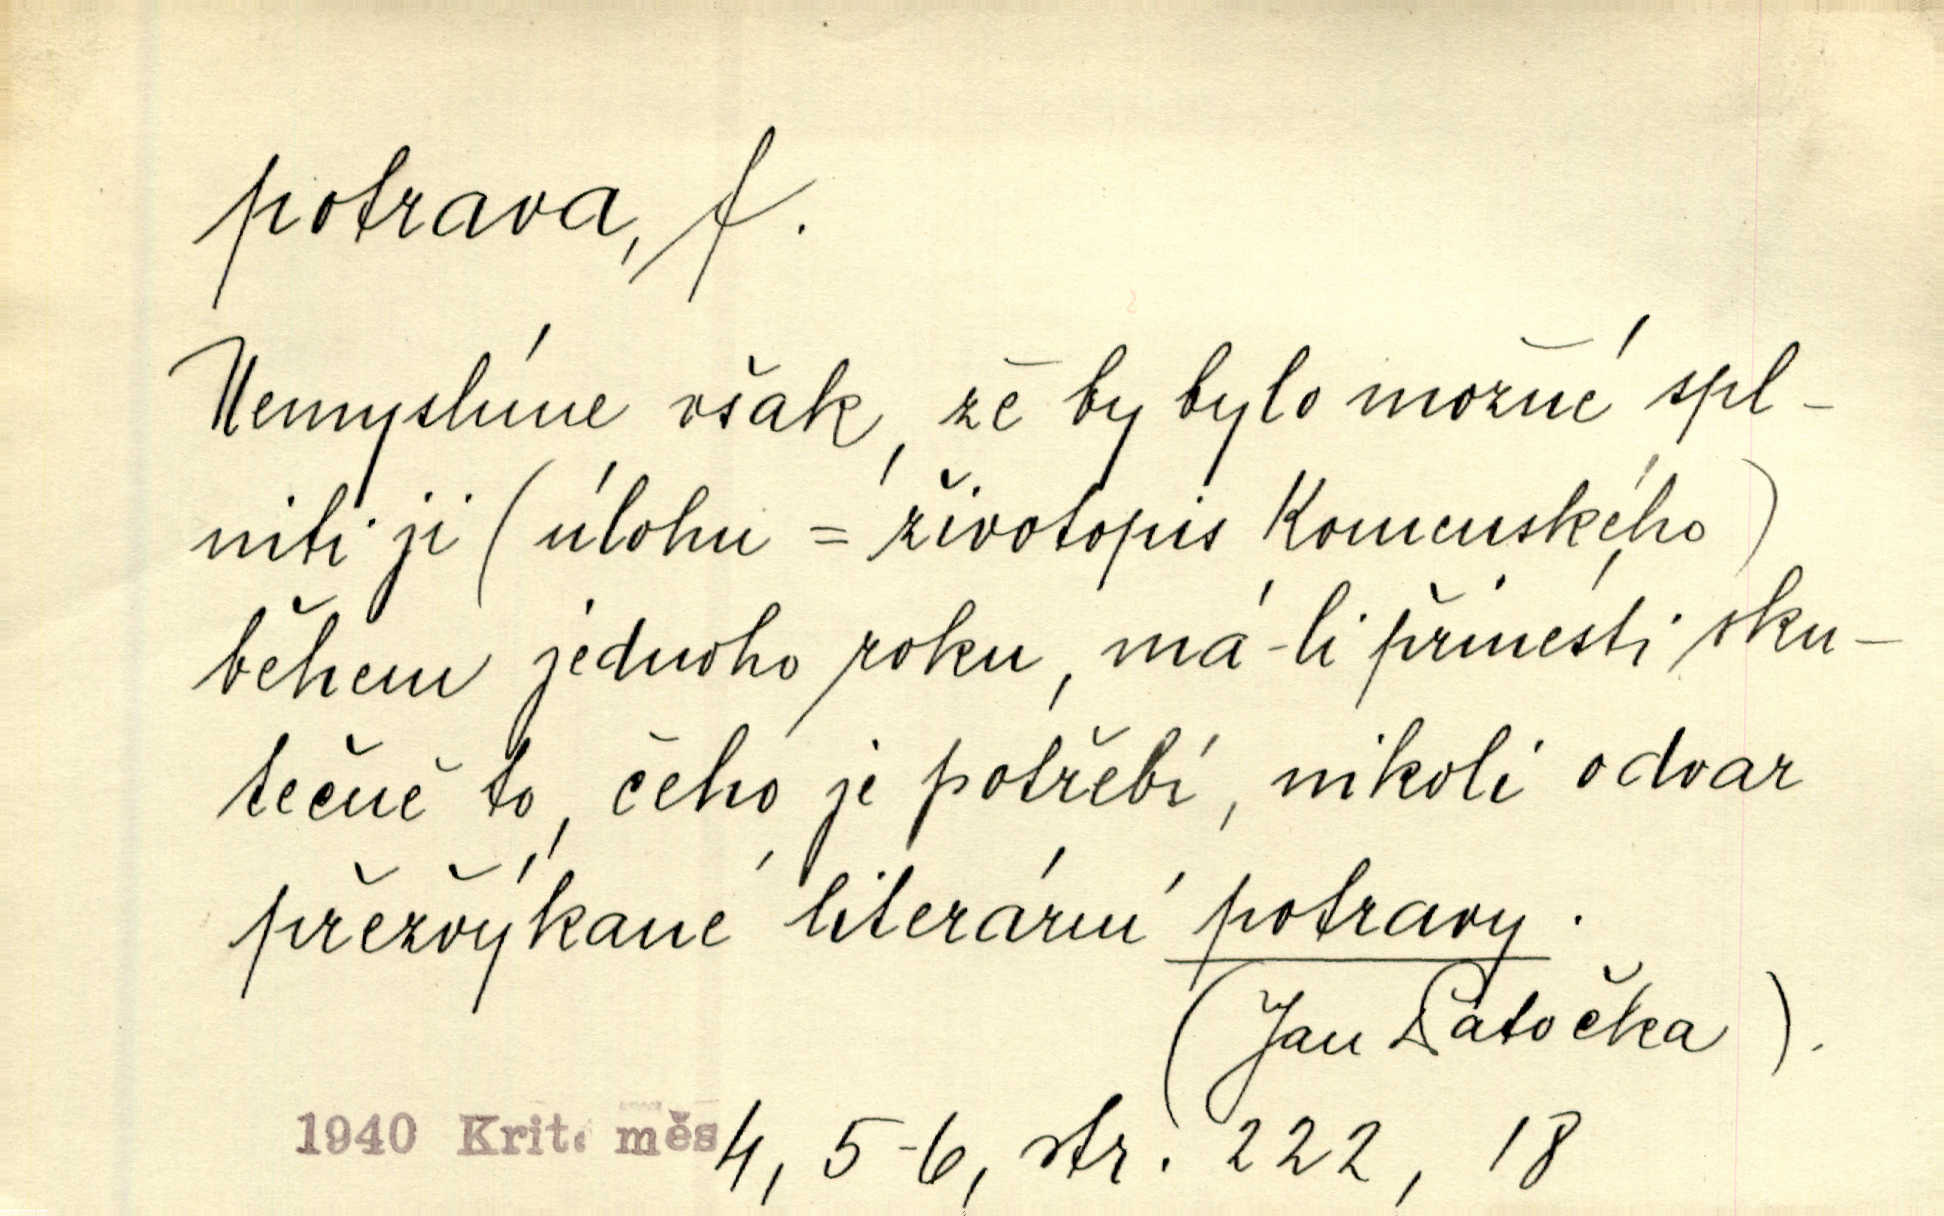 potrava, f.
Nemyslíme však, že by bylo možné spl-
niti ji (úlohu = životopis Komenského)
během jednoho roku, má-li přinésti sku-
tečně to, čeho je potřebí, nikoli odvar
přežvýkané literární potravy.
(Jan Patočka).
1940 Krit. měs 4, 5-6, str. 222, 18